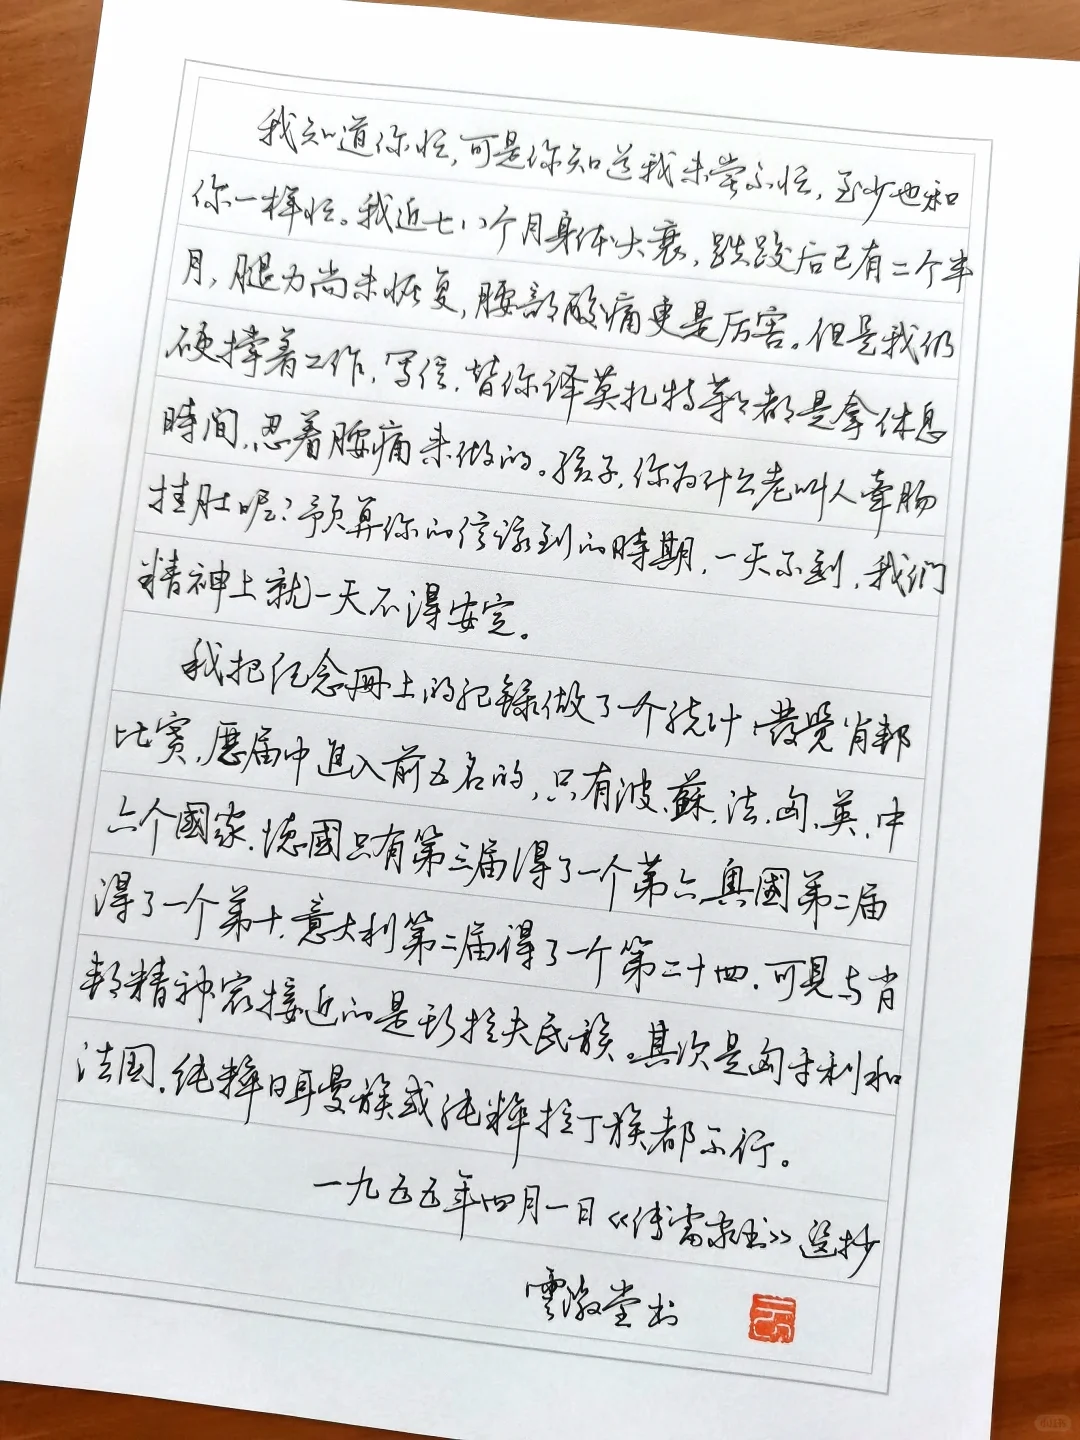 我知道你忙,可是你知道我未尝不忙,至少也和
你一样忙。我近七八个月身体大衰,跌跤后已有二个半
月,腿力尚未恢复,腰部酸痛更是厉害。但是我仍
硬撑着工作,写信,替你译莫扎特等等都是拿休息
時间,忍着腰痛来做的。孩子,你为什么老叫人牵肠
挂肚呢?预算你的信该到的時期,一天不到,我们
精神上就一天不得安定。
我把纪念册上的纪録做了一个统计,發覺肖邦
比賽,歷届中進入前五名的,只有波、蘇、法、匈、英、中
六个國家,德國只有第三届得了一个第六,奥國第二届
得了一个第十,意大利第二届得了一个第二十四,可見与肖
邦精神最接近的是斯拉夫民族。其次是匈牙利和
法国,纯粹日耳曼族或纯粹拉丁族都不行。
一九五五年四月一日《傅雷家书》選抄
雲澂堂书